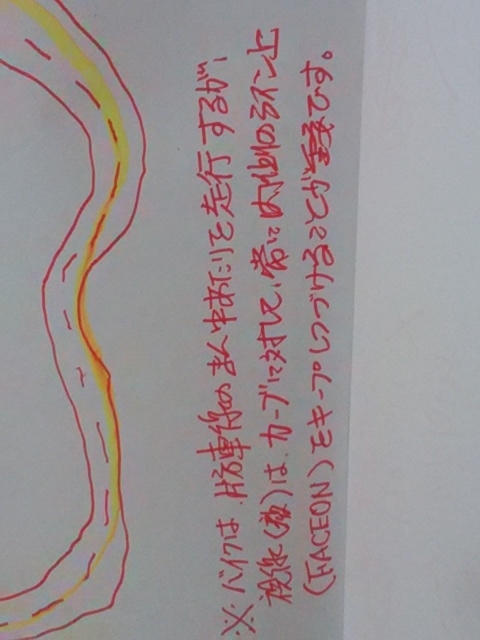 ※バイクは、片方車線のまん中あたりを走行するが、
視線(顔)は、カーブに対して、常に内側のライン上
(FACEON)をキープしつづけることが重要です。